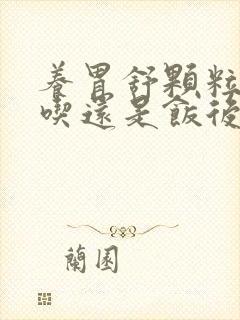 養胃舒顆粒
喫還是飯後
蘭園